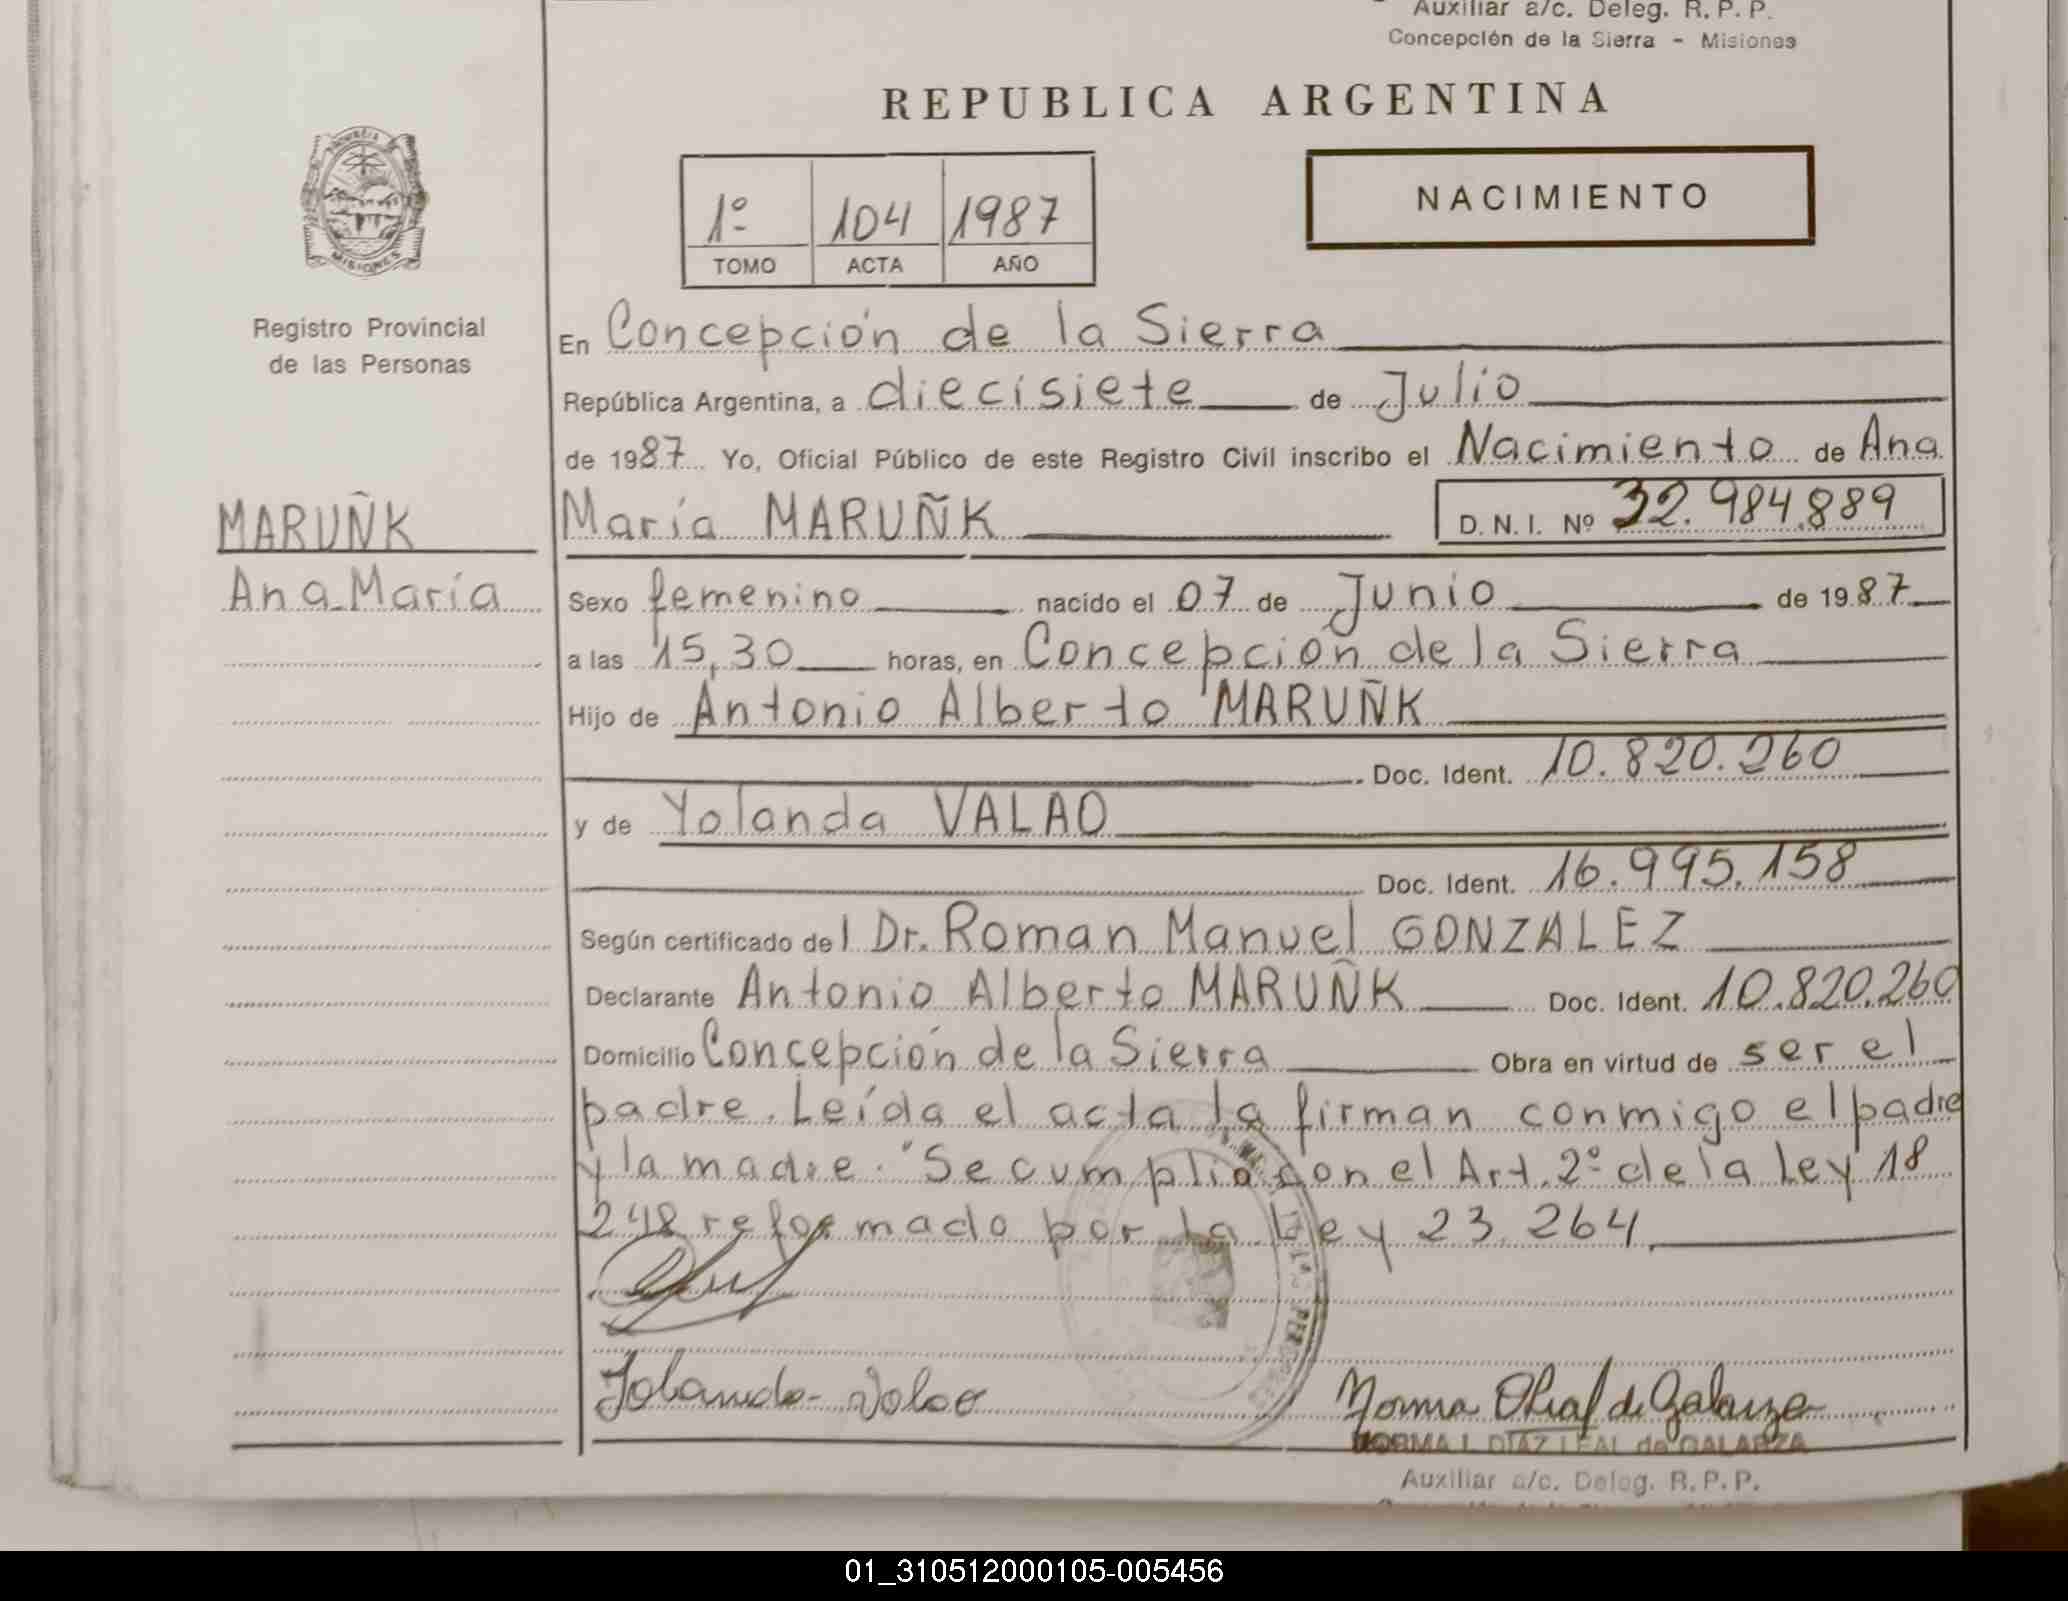 Auxiliar a/c. Deleg. R. P. P.
Concepción de la Sierra - Misiones
REPUBLICA ARGENTINA
NACIMIENTO
1º 104 1987
TOMO ACTA AÑO
MISIONES
Registro Provincial
de las Personas
En Concepción de la Sierra
República Argentina, a diecisiete de Julio
de 1987 Yo, Oficial Público de este Registro Civil inscribo el Nacimiento de Ana
MARUÑK
Ana María
María MARUÑK D. N. I. Nº 32.984.889
Sexo femenino nacido el 07 de Junio de 1987
a las 15,30 horas, en Concepción de la Sierra
Hijo de Antonio Alberto MARUÑK
Doc. Ident. 10.820.260
y de Yolanda VALAO
Doc. Ident. 16.995.158
Según certificado del Dr. Roman Manuel GONZALEZ
Declarante Antonio Alberto MARUÑK Doc. Ident. 10.820.260
Domicilio Concepción de la Sierra Obra en virtud de ser el
padre. Leída el acta la firman conmigo el padre
y la madre. "Se cumplió con el Art. 2º de la Ley 18
248 reformado por la Ley 23.264.
Yolanda Valao
NORMA I. DIAZ LEAL de GALARZA
Auxiliar a/c. Deleg. R. P. P.
01_310512000105-005456